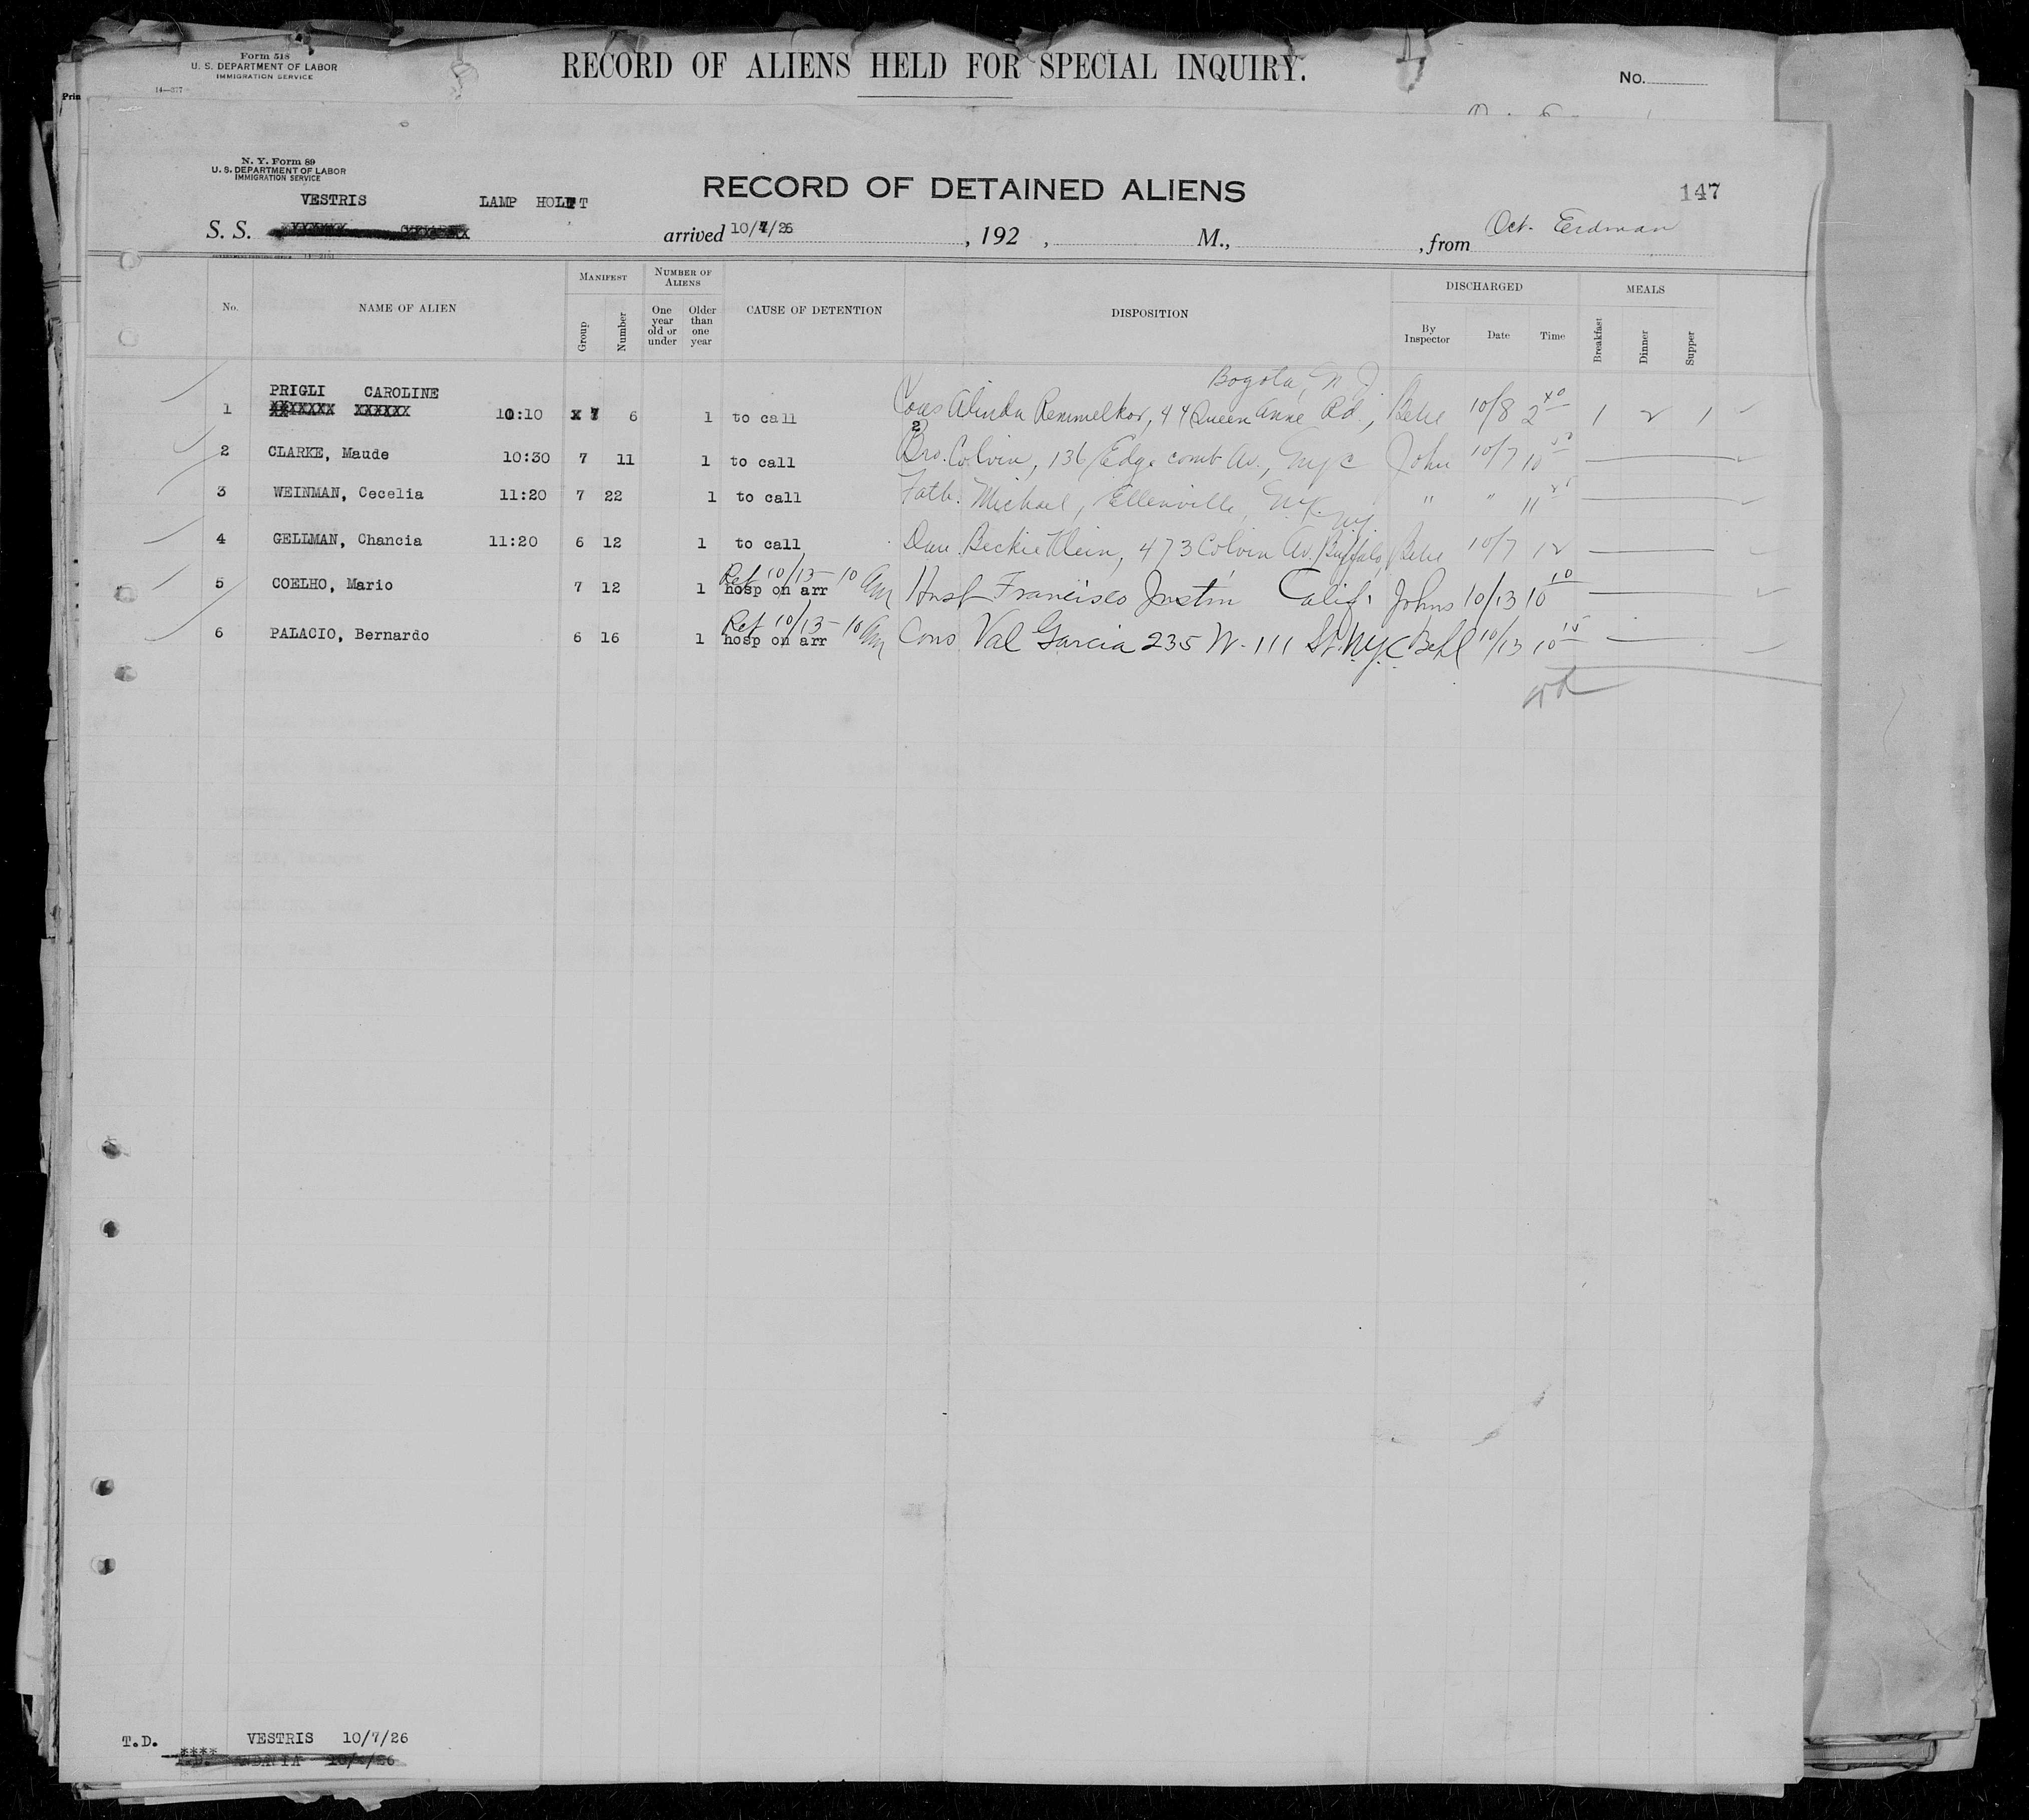 Form 518
U. S. DEPARTMENT OF LABOR
IMMIGRATION SERVICE
14—377
Prin
RECORD OF ALIENS HELD FOR SPECIAL INQUIRY.
No.
N. Y. Form 89
U. S. DEPARTMENT OF LABOR
IMMIGRATION SERVICE
RECORD OF DETAINED ALIENS
147
VESTRIS LAMP HOLT
S. S. arrived 10/7/26, 192 , M., , from Oct. Erdman
No. NAME OF ALIEN MANIFEST Group Number NUMBER OF ALIENS One year old or under Older than one year CAUSE OF DETENTION DISPOSITION DISCHARGED By Inspector Date Time MEALS Breakfast Dinner Supper
Bogota, N.J.
PRIGLI CAROLINE
1 XXXXXXX XXXXXX 10:10 x 7 6 1 to call Cous Alinda Remmelkor, 44 Queen Anne Rd., 10/8 2 40 1 2 1
2 CLARKE, Maude 10:30 7 11 1 to call Bro. Colvin, 136 Edgecomb Av., NYC John 10/7 10
3 WEINMAN, Cecelia 11:20 7 22 1 to call Fath. Michael, Ellenville, N.Y. " " 11
N.Y.
4 GELLMAN, Chancia 11:20 6 12 1 to call Dau. Beckie Klein, 473 Colvin Av. Buffalo, 10/7 12
Ref 10/13 - 10 Am
5 COELHO, Mario 7 12 1 hosp on arr Husb Francisco Justin Calif. Johns 10/13 10 10
Ref 10/13 - 10 Am
6 PALACIO, Bernardo 6 16 1 hosp on arr Cons Val Garcia 235 W. 111 St. NYC 10/13 10 15
T.D. VESTRIS 10/7/26
****